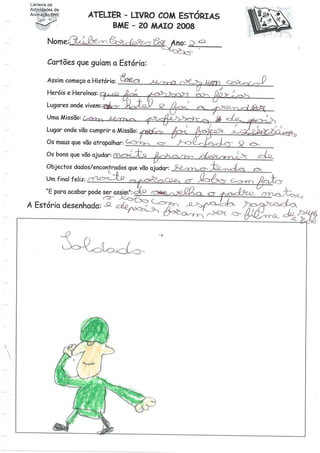 Carteira de
Actividades de
Animação BME
ATELIER - LIVRO COM ESTÓRIAS
BME - 20 MAIO 2008
Nome: Rúben Ano: 2º
Lobo
Cartões que guiam a Estória:
Assim começa a História: Era uma vez um coronel
Heróis e Heroínas: que foi passar as férias
Lugares onde vivem: hotel e foi a prender
Uma Missão: com uma professora e depois
Lugar onde vão cumprir a Missão: foi fazer exercícios
Os maus que vão atrapalhar: com o soldado e a
Os bons que vão ajudar: noite foram dormir de
Objectos dados/encontrados que vão ajudar: tenda a
Um final feliz: noite apareceu o lobo com fato
"E para acabar pode ser assim": de velha o padre matou
o lobo com espada sagrada
A Estória desenhada: e depois foram ver o filme de
Soldado